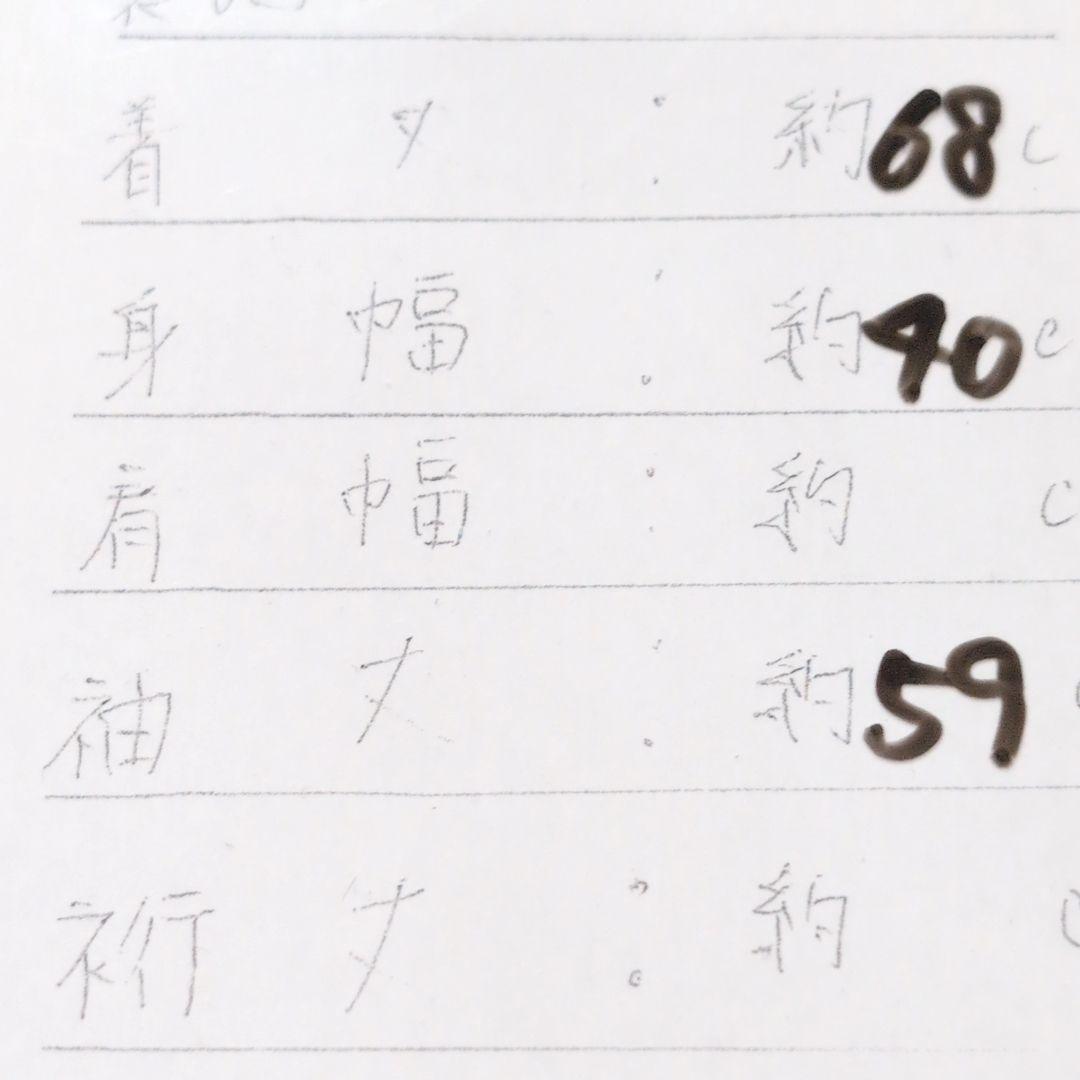 着丈：約68c
身幅：約40c
肩幅：約 c
袖丈：約59c
裄丈：約 c